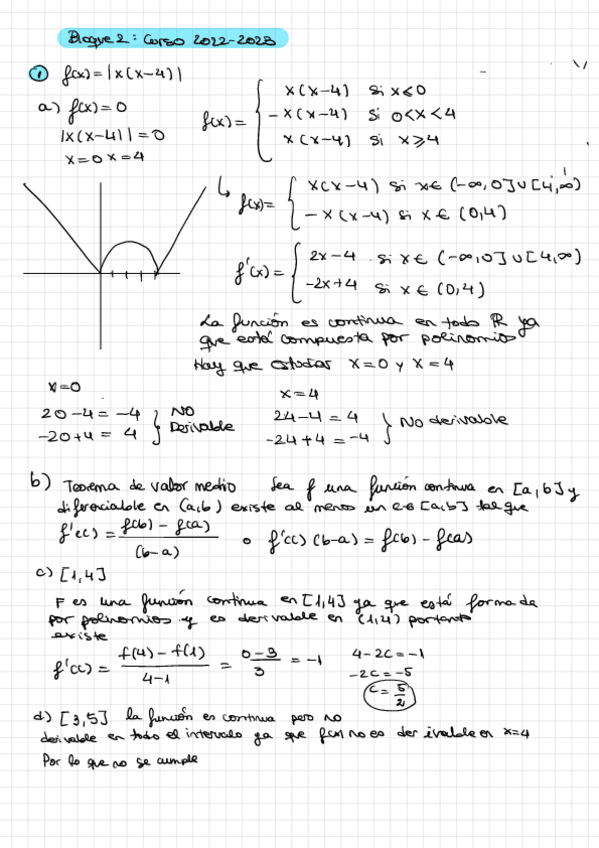 Bloque 2: Curso 2022-2023
① f(x)=|x(x-4)|
a) f(x)=0
|x(x-4)|=0
x=0 x=4
f(x)= { x(x-4) si x≤0
-x(x-4) si 0<x<4
x(x-4) si x≥4
↳ f(x)= { x(x-4) si x∈(-∞,0]∪[4,∞)
-x(x-4) si x∈(0,4)
f'(x)= { 2x-4 . si x∈(-∞,0]∪[4,∞)
-2x+4 si x∈(0,4)
La función es continua en todo ℝ ya
que está compuesta por polinomios
Hay que estudiar x=0 y x=4
x=0
20-4=-4
-20+4= 4
} NO Derivable
x=4
24-4=4
-24+4=-4
} No derivable
b) Teorema de valor medio Sea f una función continua en [a,b] y
diferenciable en (a,b) existe al menos un c∈[a,b] tal que
f'(c)= f(b)-f(a) / (b-a) o f'(c)(b-a)=f(b)-f(a)
c) [1,4]
F es una función continua en [1,4] ya que está formada
por polinomios y es derivable en (1,4) portanto
existe
f'(c)= f(4)-f(1) / 4-1 = 0-3 / 3 = -1
4-2c=-1
-2c=-5
c= 5/2
d) [3,5] la función es continua pero no
derivable en todo el intervalo ya que f(x) no es derivable en x=4
Por lo que no se cumple